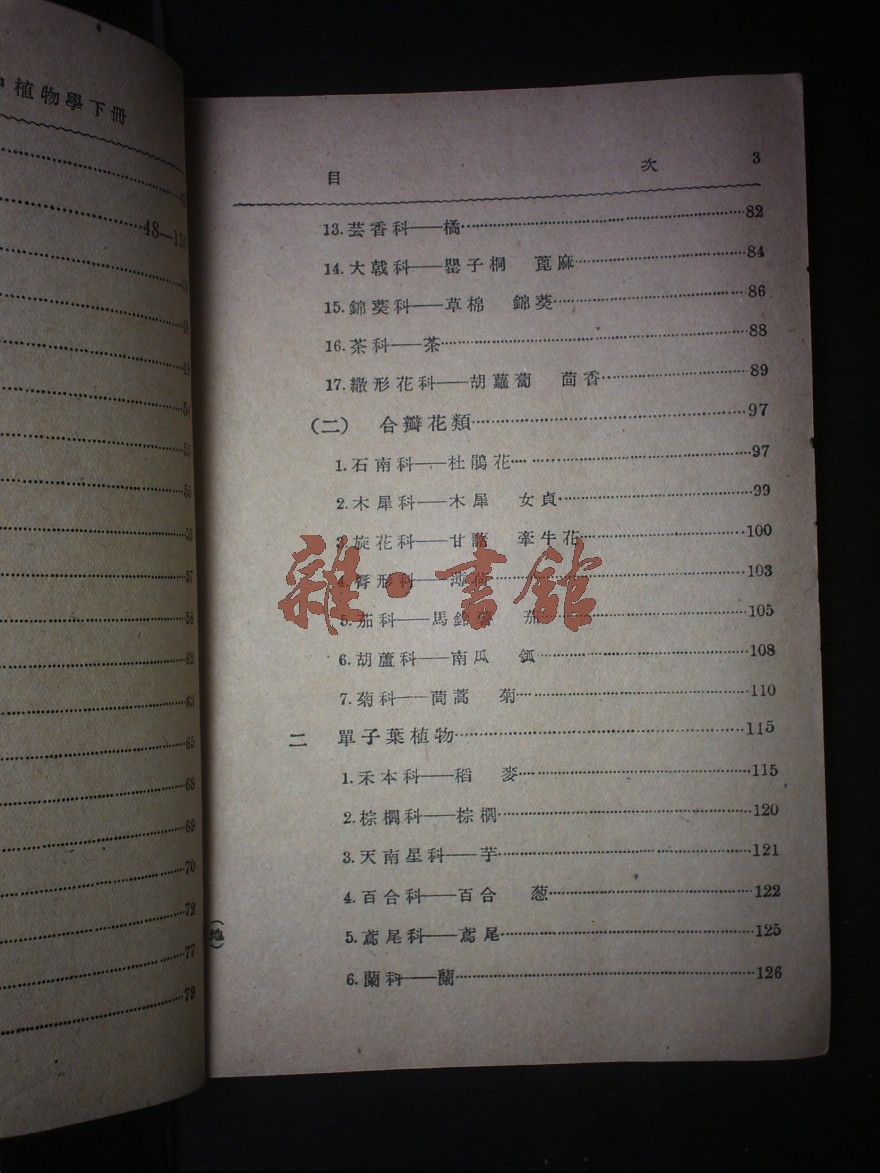 植物學下冊
48—1
54
57
58
62
63
65
68
69
70
72
77
79
目 次 3
13.芸香科——橘……82
14.大戟科——罌子桐 蓖麻……84
15.錦葵科——草棉 錦葵……86
16.茶科——茶……88
17.繖形花科——胡蘿蔔 茴香……89
(二) 合瓣花類……97
1.石南科——杜鵑花……97
2.木犀科——木犀 女貞……99
3.旋花科——甘藷 牽牛花……100
4.脣形科——薄荷……103
5.茄科——馬鈴薯 茄……105
6.胡蘆科——南瓜 瓠……108
7.菊科——茼蒿 菊……110
二 單子葉植物……115
1.禾本科——稻 麥……115
2.棕櫚科——棕櫚……120
3.天南星科——芋……121
4.百合科——百合 葱……122
5.鳶尾科——鳶尾……125
6.蘭科——蘭……126
雜·書館